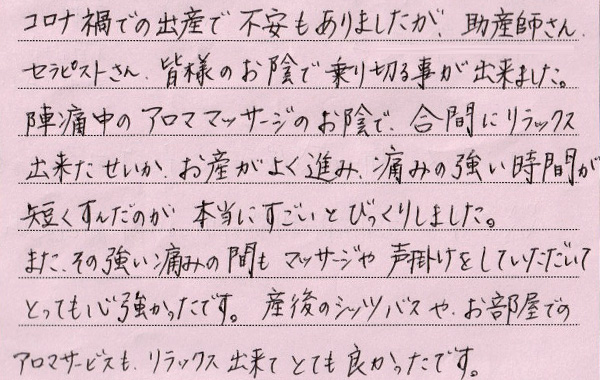 コロナ禍での出産で不安もありましたが、助産師さん、
セラピストさん、皆様のお陰で乗り切る事が出来ました。
陣痛中のアロママッサージのお陰で、合間にリラックス
出来たせいか、お産がよく進み、痛みの強い時間が
短くすんだのが、本当にすごいとびっくりしました。
また、その強い痛みの間もマッサージや声掛けをしていただいて
とっても心強かったです。産後のシッツバスや、お部屋での
アロマサービスも、リラックス出来てとても良かったです。